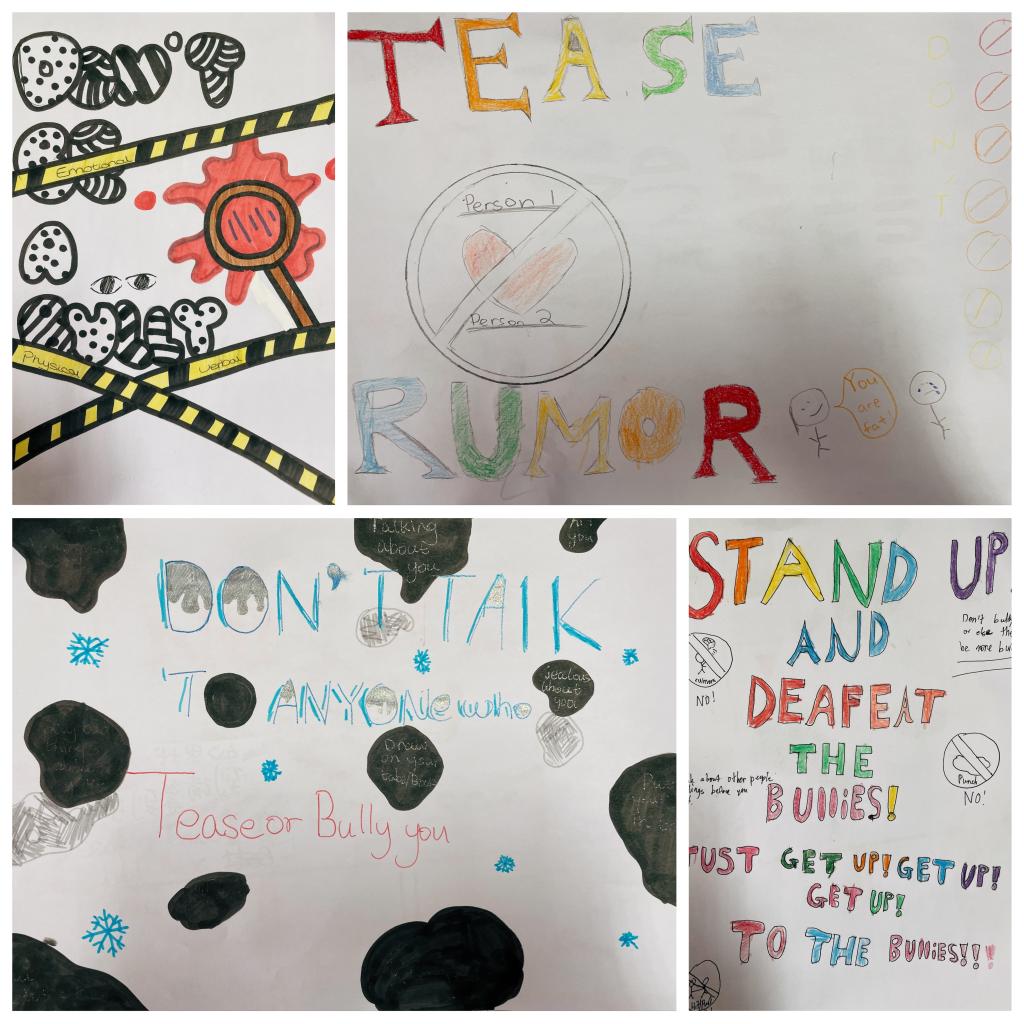 DON'T
BE
Emotional
A
BULLY
Physical
Verbal
TEASE
DON'T
Person 1
Person 2
RUMOR
You
are
fat!
Talking
about
you
you
DON'T TALK
TO ANYONE who
jealous
about
you
Draw
on your
Tease or Bully you
STAND UP
AND
Don't bully
or else
be more
rumors
NO!
DEAFEAT
THE
Punch
NO!
about other people
before you
BUllIES!
JUST GET UP! GET UP!
GET UP!
TO THE BUllIES!!!